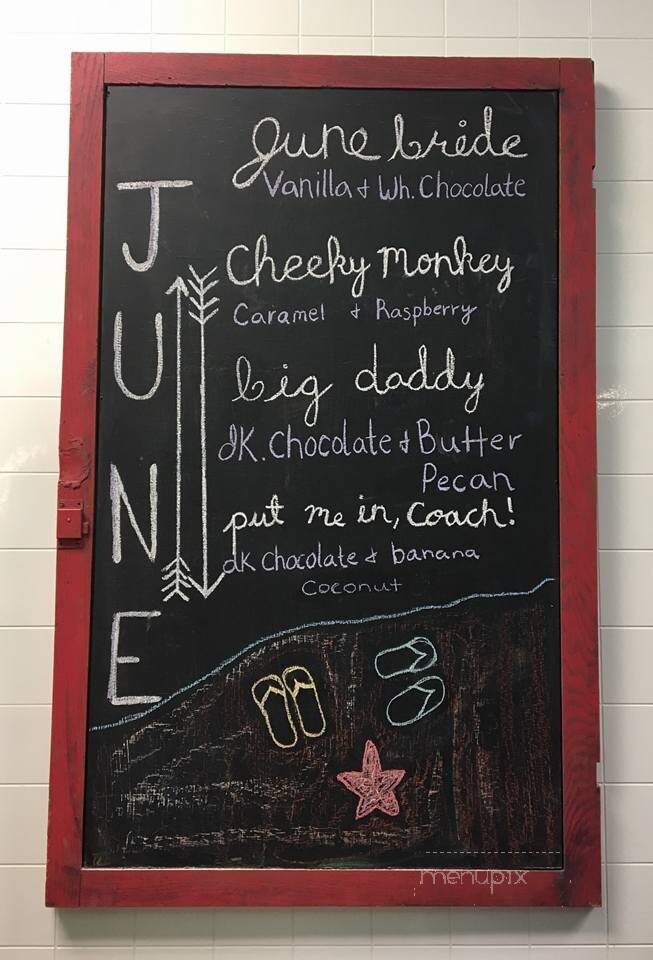 JUNE
June bride
Vanilla + Wh. Chocolate
Cheeky Monkey
Caramel + Raspberry
big daddy
dK. Chocolate + Butter
Pecan
put me in, Coach!
dK Chocolate + banana
Coconut
menupix